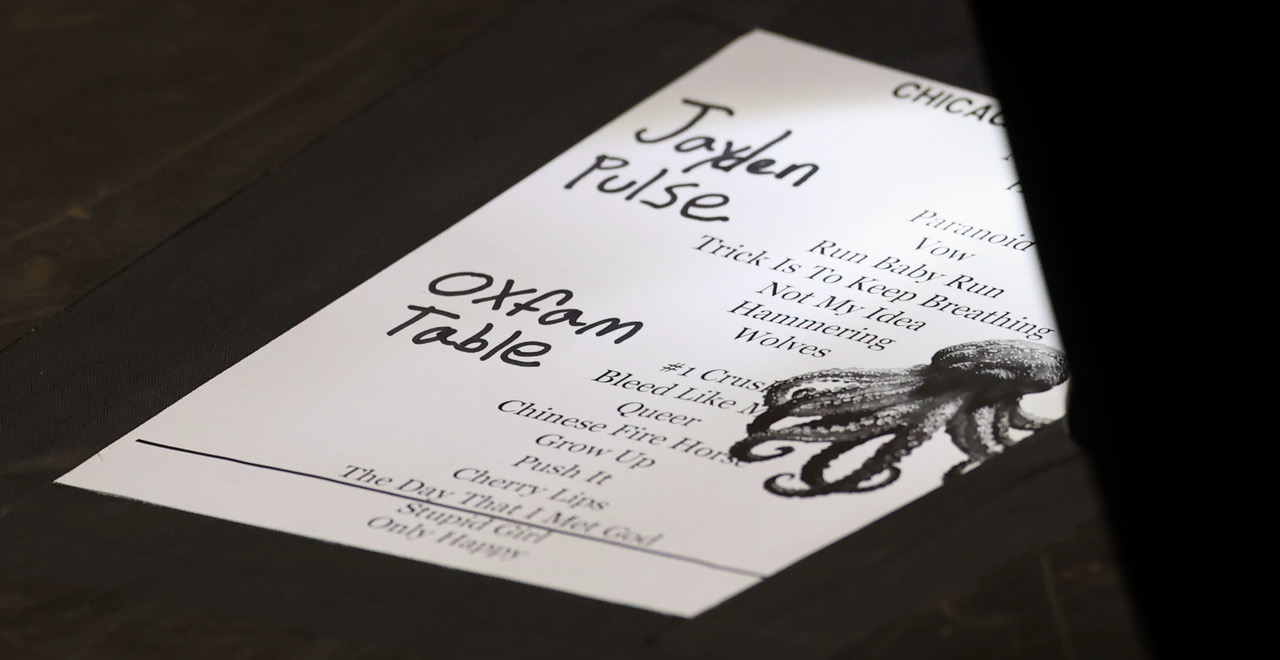 CHICAG
Jayden
Pulse
Paranoid
Vow
Run Baby Run
Trick Is To Keep Breathing
Not My Idea
Hammering
Wolves
Oxfam
Table
#1 Crush
Bleed Like M
Queer
Chinese Fire Horse
Grow Up
Push It
Cherry Lips
The Day That I Met God
Stupid Girl
Only Happy